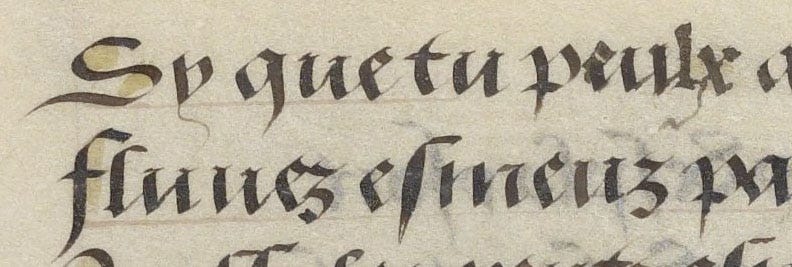 Sy que tu peulx
fluuez esmeuz pa